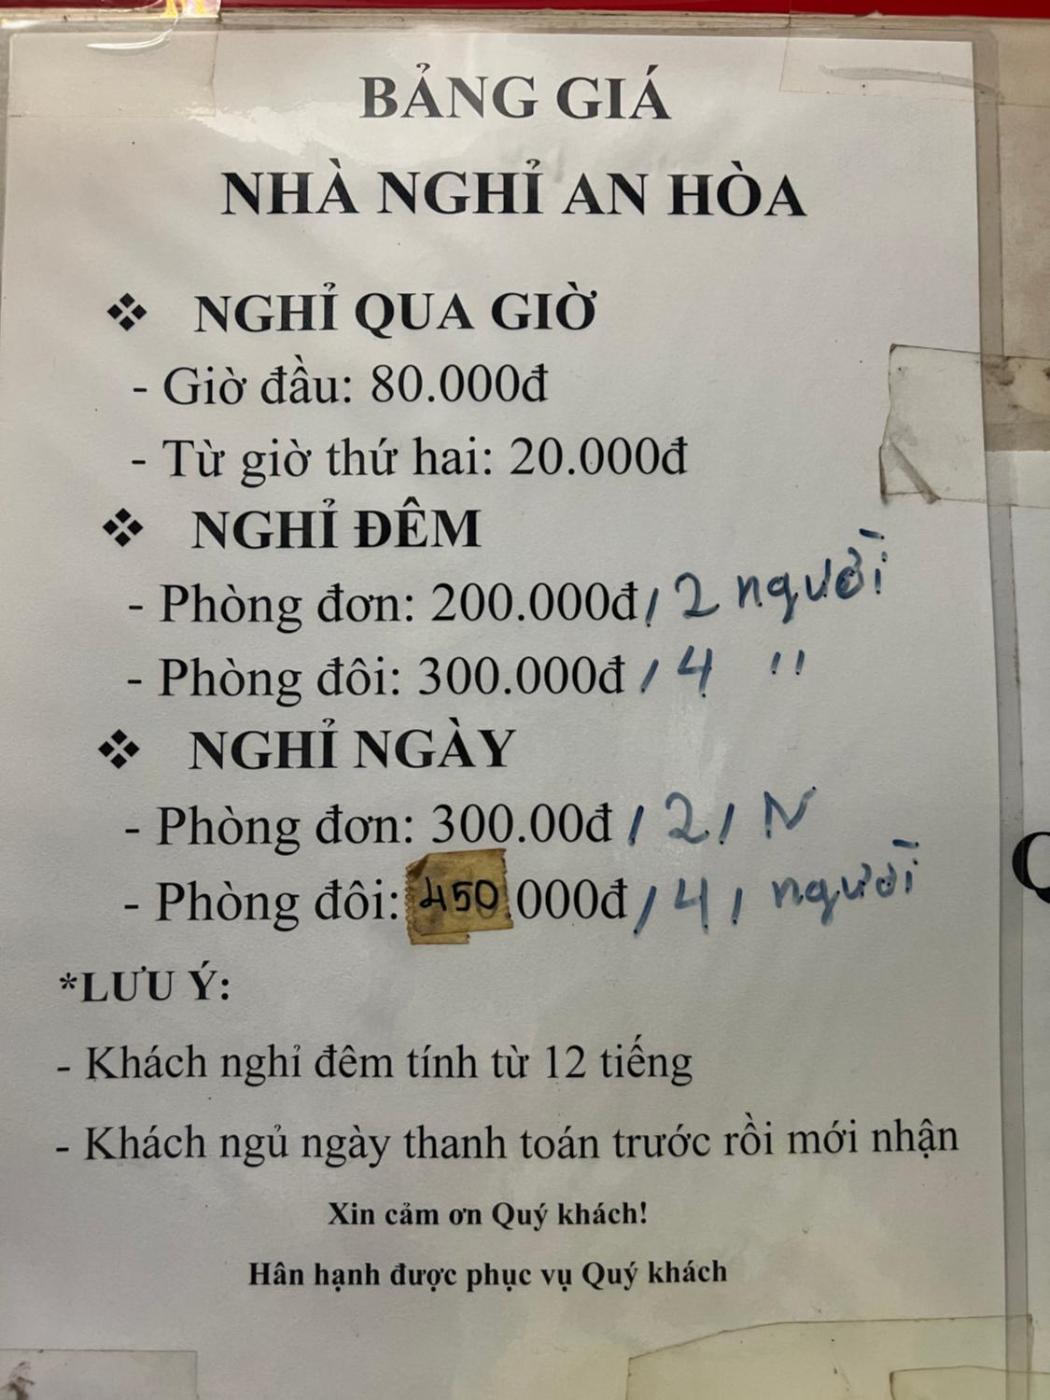 BẢNG GIÁ
NHÀ NGHỈ AN HÒA
❖ NGHỈ QUA GIỜ
- Giờ đầu: 80.000đ
- Từ giờ thứ hai: 20.000đ
❖ NGHỈ ĐÊM
- Phòng đơn: 200.000đ / 2 người
- Phòng đôi: 300.000đ / 4 "
❖ NGHỈ NGÀY
- Phòng đơn: 300.00đ / 2 / N
- Phòng đôi: 450.000đ / 4 / người
*LƯU Ý:
- Khách nghỉ đêm tính từ 12 tiếng
- Khách ngủ ngày thanh toán trước rồi mới nhận
Xin cảm ơn Quý khách!
Hân hạnh được phục vụ Quý khách